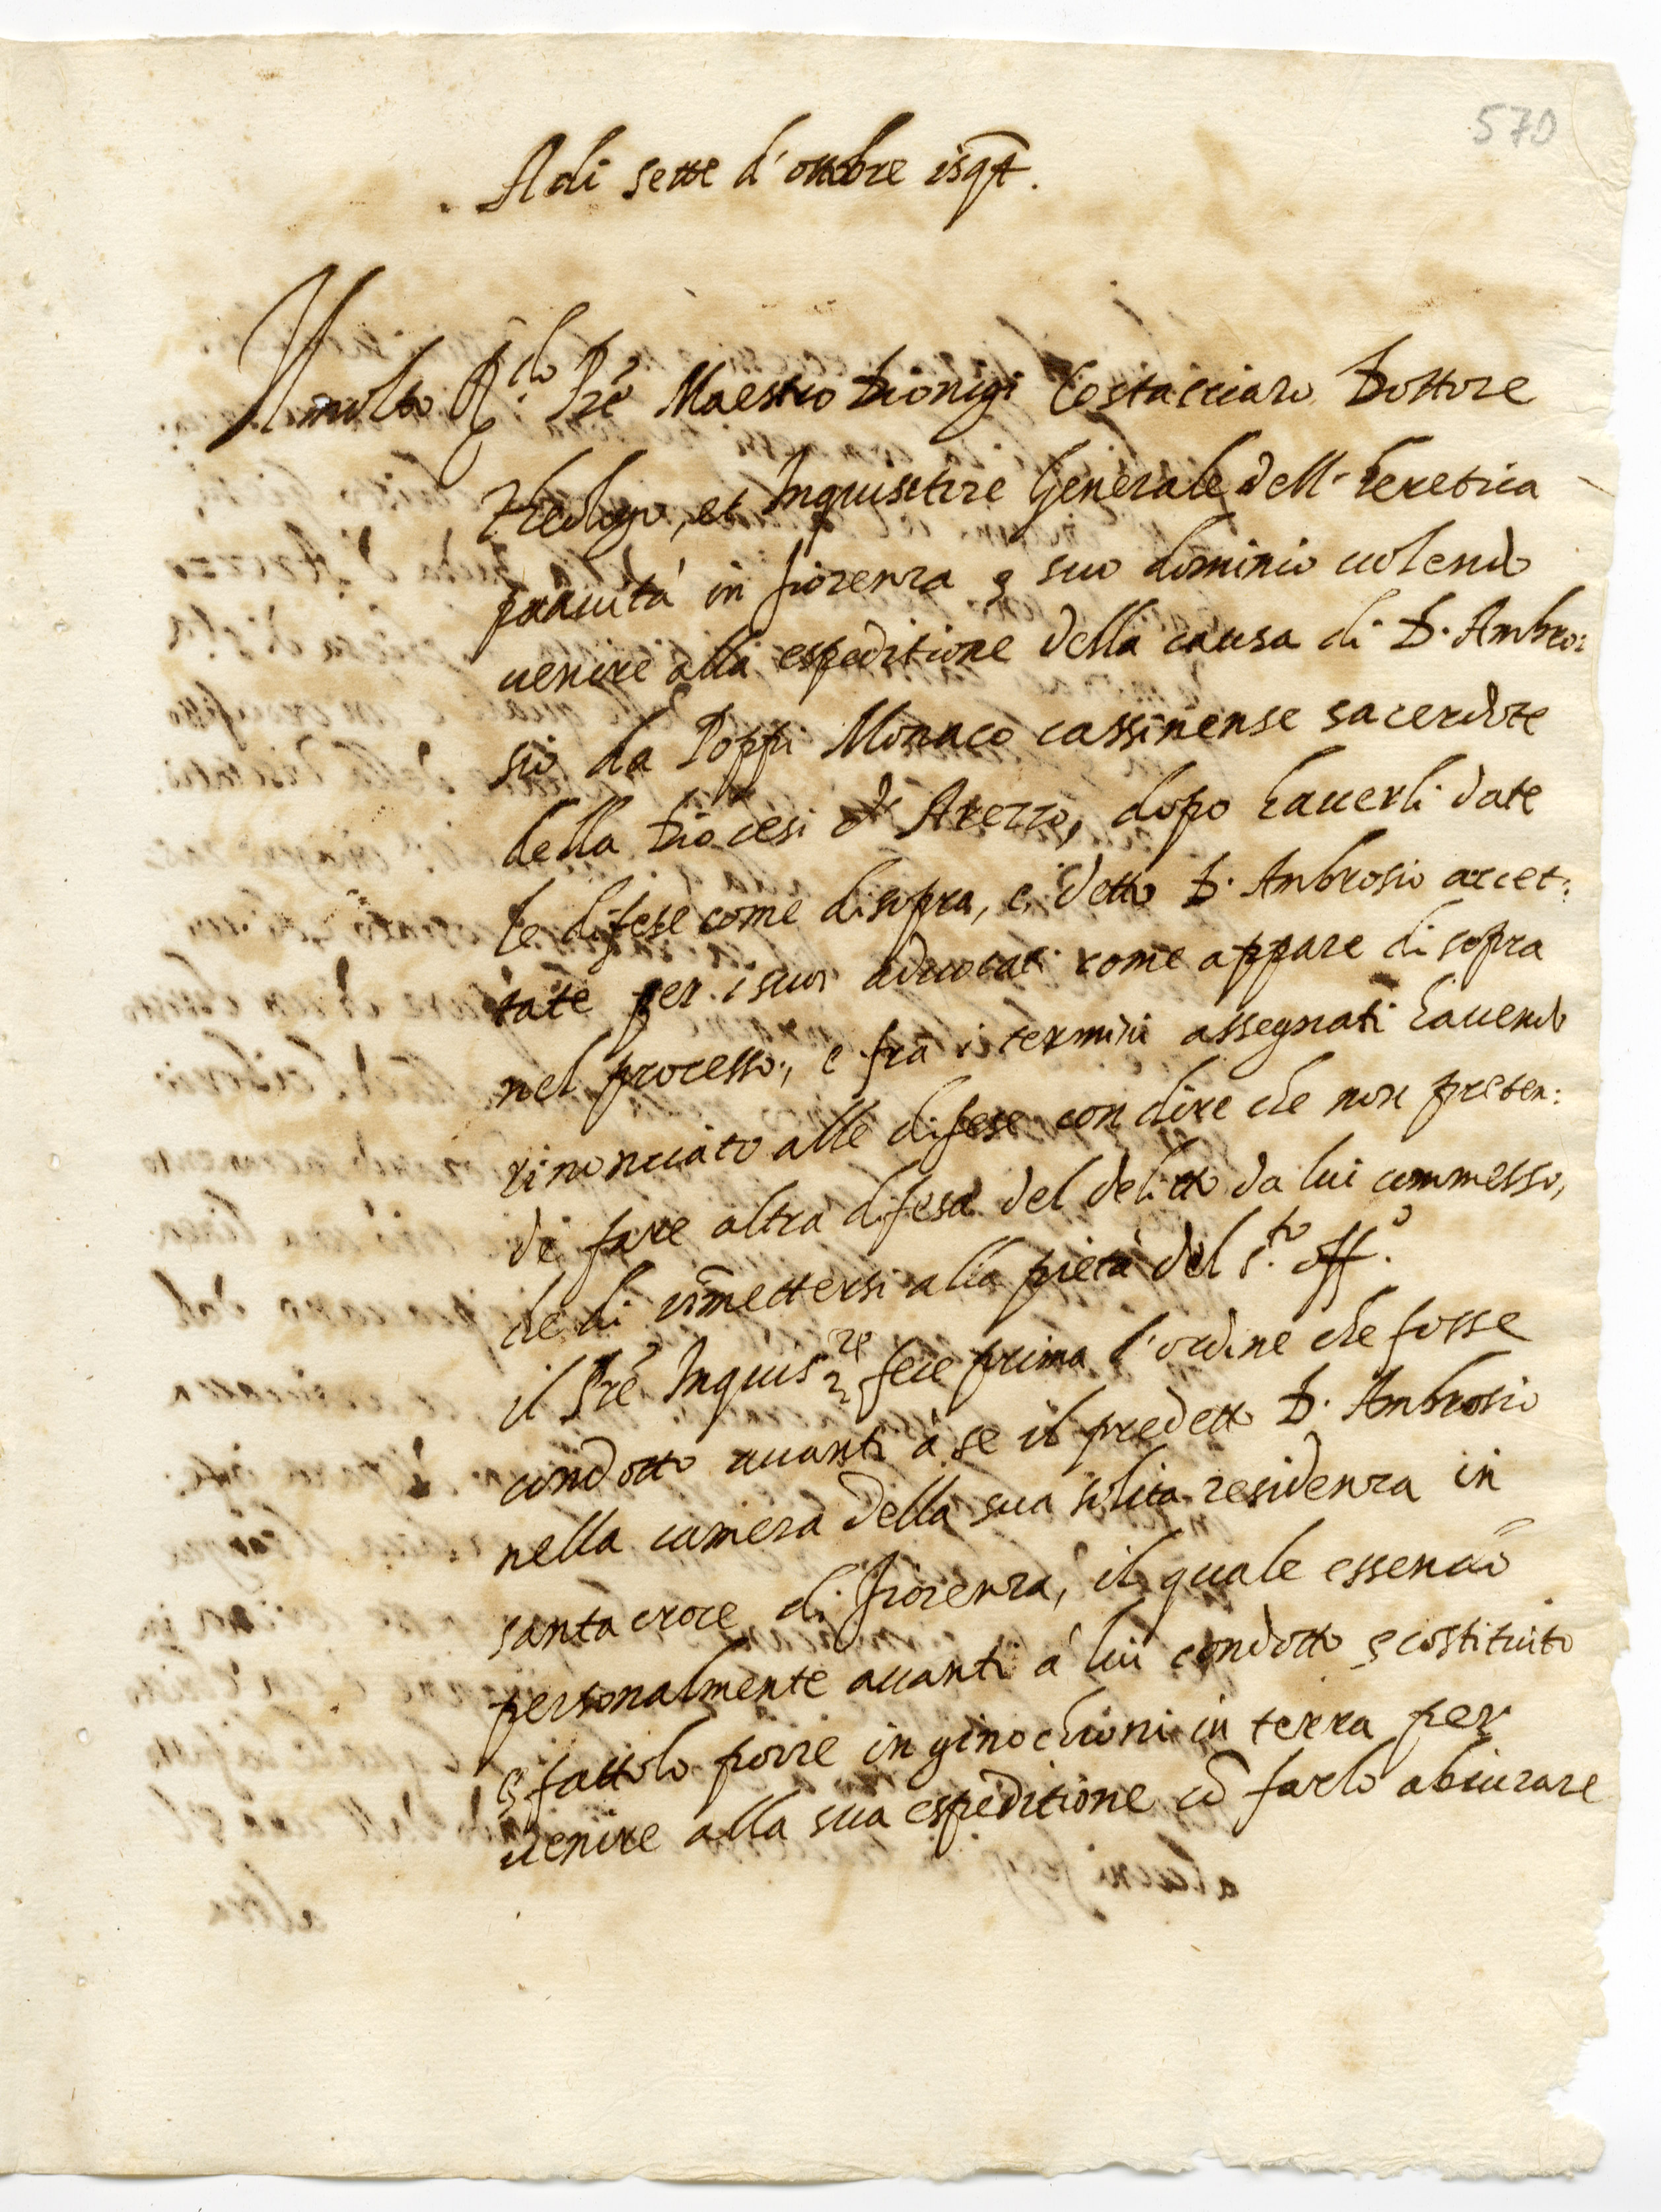 570
Adi sette d'ottobre 1597.
Il molto R.do Pre Maestro Dionigi Costacciaro Dottore
Theologo, et Inquisitore Generale dell'heretica
pravità in fiorenza e suo dominio volendo
venire alla espeditione della causa di D. Ambro:
sio da Poppi Monaco cassinense sacerdote
della Diocesi di Arezzo, dopo haverli date
le difese come di sopra, e detto D. Ambrosio accet:
tate per i suoi advocati come appare di sopra
nel processo, e fra i termini assegnati havendo
rinonciato alle difese con dire che non preten:
de fare altra difesa del delitto da lui commesso,
che di rimettersi alla pietà del S.to off.o
il Pre Inquis.re fece prima l'ordine che fosse
condotto avanti à se il predetto D. Ambrosio
nella camera della sua solita residenza in
santa croce di fiorenza, il quale essendo
personalmente avanti à lui condotto e costituito
e fattolo porre in ginochioni in terra per
venire alla sua espeditione cō farlo abiurare